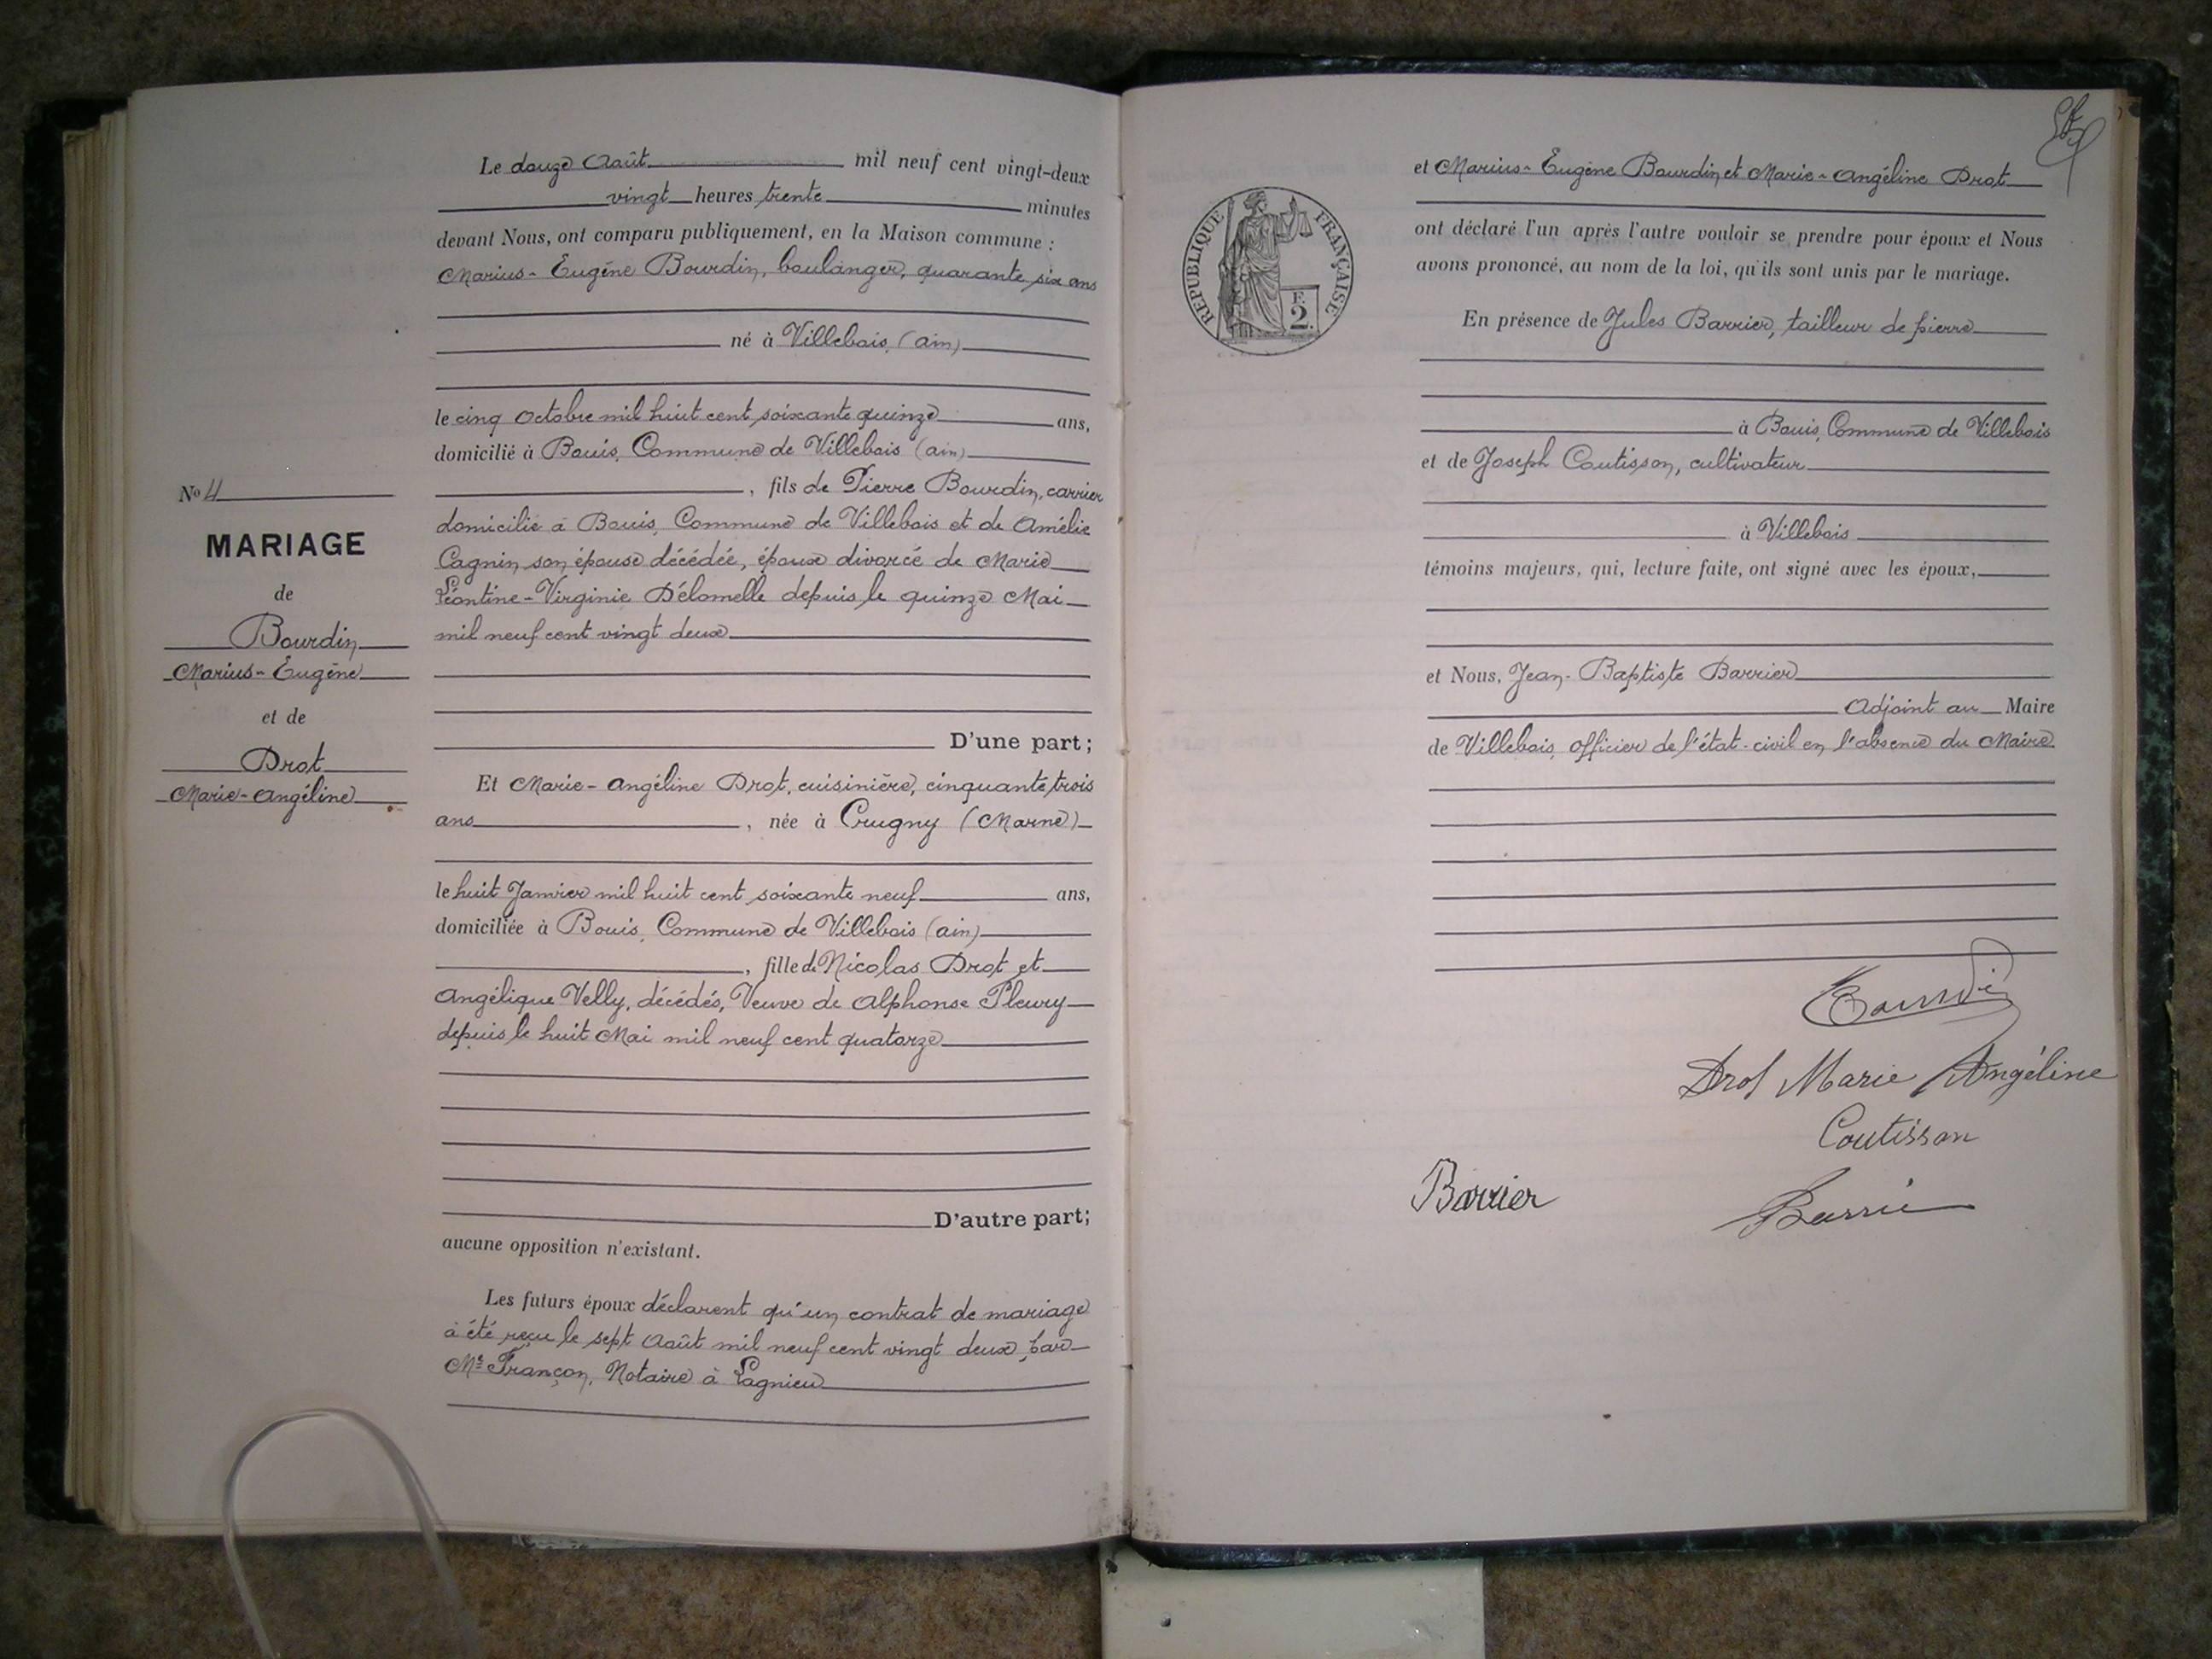 Le douze Août mil neuf cent vingt-deux
vingt heures trente minutes
devant Nous, ont comparu publiquement, en la Maison commune :
Marius-Eugène Bourdin, boulanger, quarante six ans
né à Villebois, (ain)
le cinq Octobre mil huit cent soixante quinze ans,
domicilié à Bouis, Commune de Villebois (ain)
, fils de Pierre Bourdin, carrier
domicilié à Bouis, Commune de Villebois et de Amélie
Cagnin son épouse décédée, époux divorcé de Marie
Léontine-Virginie Délomelle depuis le quinze Mai
mil neuf cent vingt deux
D'une part;
Et Marie-Angéline Drot, cuisinière, cinquante trois
ans, née à Crugny (Marne)
le huit Janvier mil huit cent soixante neuf ans,
domiciliée à Bouis, Commune de Villebois (ain)
, fille de Nicolas Drot et
Angélique Velly, décédés, Veuve de Alphonse Fleury
depuis le huit Mai mil neuf cent quatorze
D'autre part;
aucune opposition n'existant.
Les futurs époux déclarent qu'un contrat de mariage
à été reçu le sept Août mil neuf cent vingt deux par
Me Françon, Notaire à Lagnieu
No 4
MARIAGE
de
Bourdin
Marius-Eugène
et de
Drot
Marie-Angéline
et Marius-Eugène Bourdin et Marie-Angéline Drot
ont déclaré l'un après l'autre vouloir se prendre pour époux et Nous
avons prononcé, au nom de la loi, qu'ils sont unis par le mariage.
En présence de Jules Barrier, tailleur de pierre
à Bouis, Commune de Villebois
et de Joseph Coutisson, cultivateur
à Villebois
témoins majeurs, qui, lecture faite, ont signé avec les époux,
et Nous, Jean-Baptiste Barrier
Adjoint au Maire
de Villebois, officier de l'état-civil en l'absence du Maire.
RÉPUBLIQUE FRANÇAISE
F.
2.
Bourdin
Drot Marie Angéline
Coutisson
Barrier